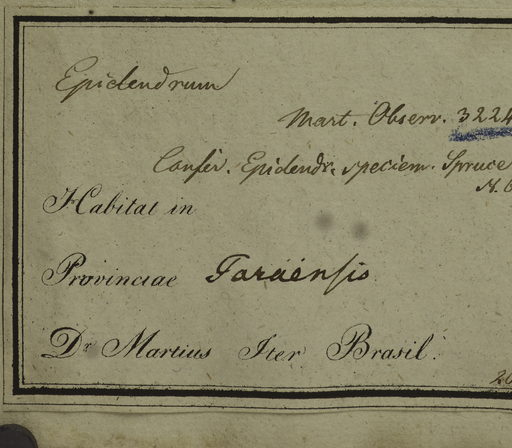 Epidendrum
Mart. Observ. 3224
Confer. Epidendr. speciem. Spruce
N. 6
Habitat in
Provinciae Paraënsis
Dr Martius Iter Brasil.
20